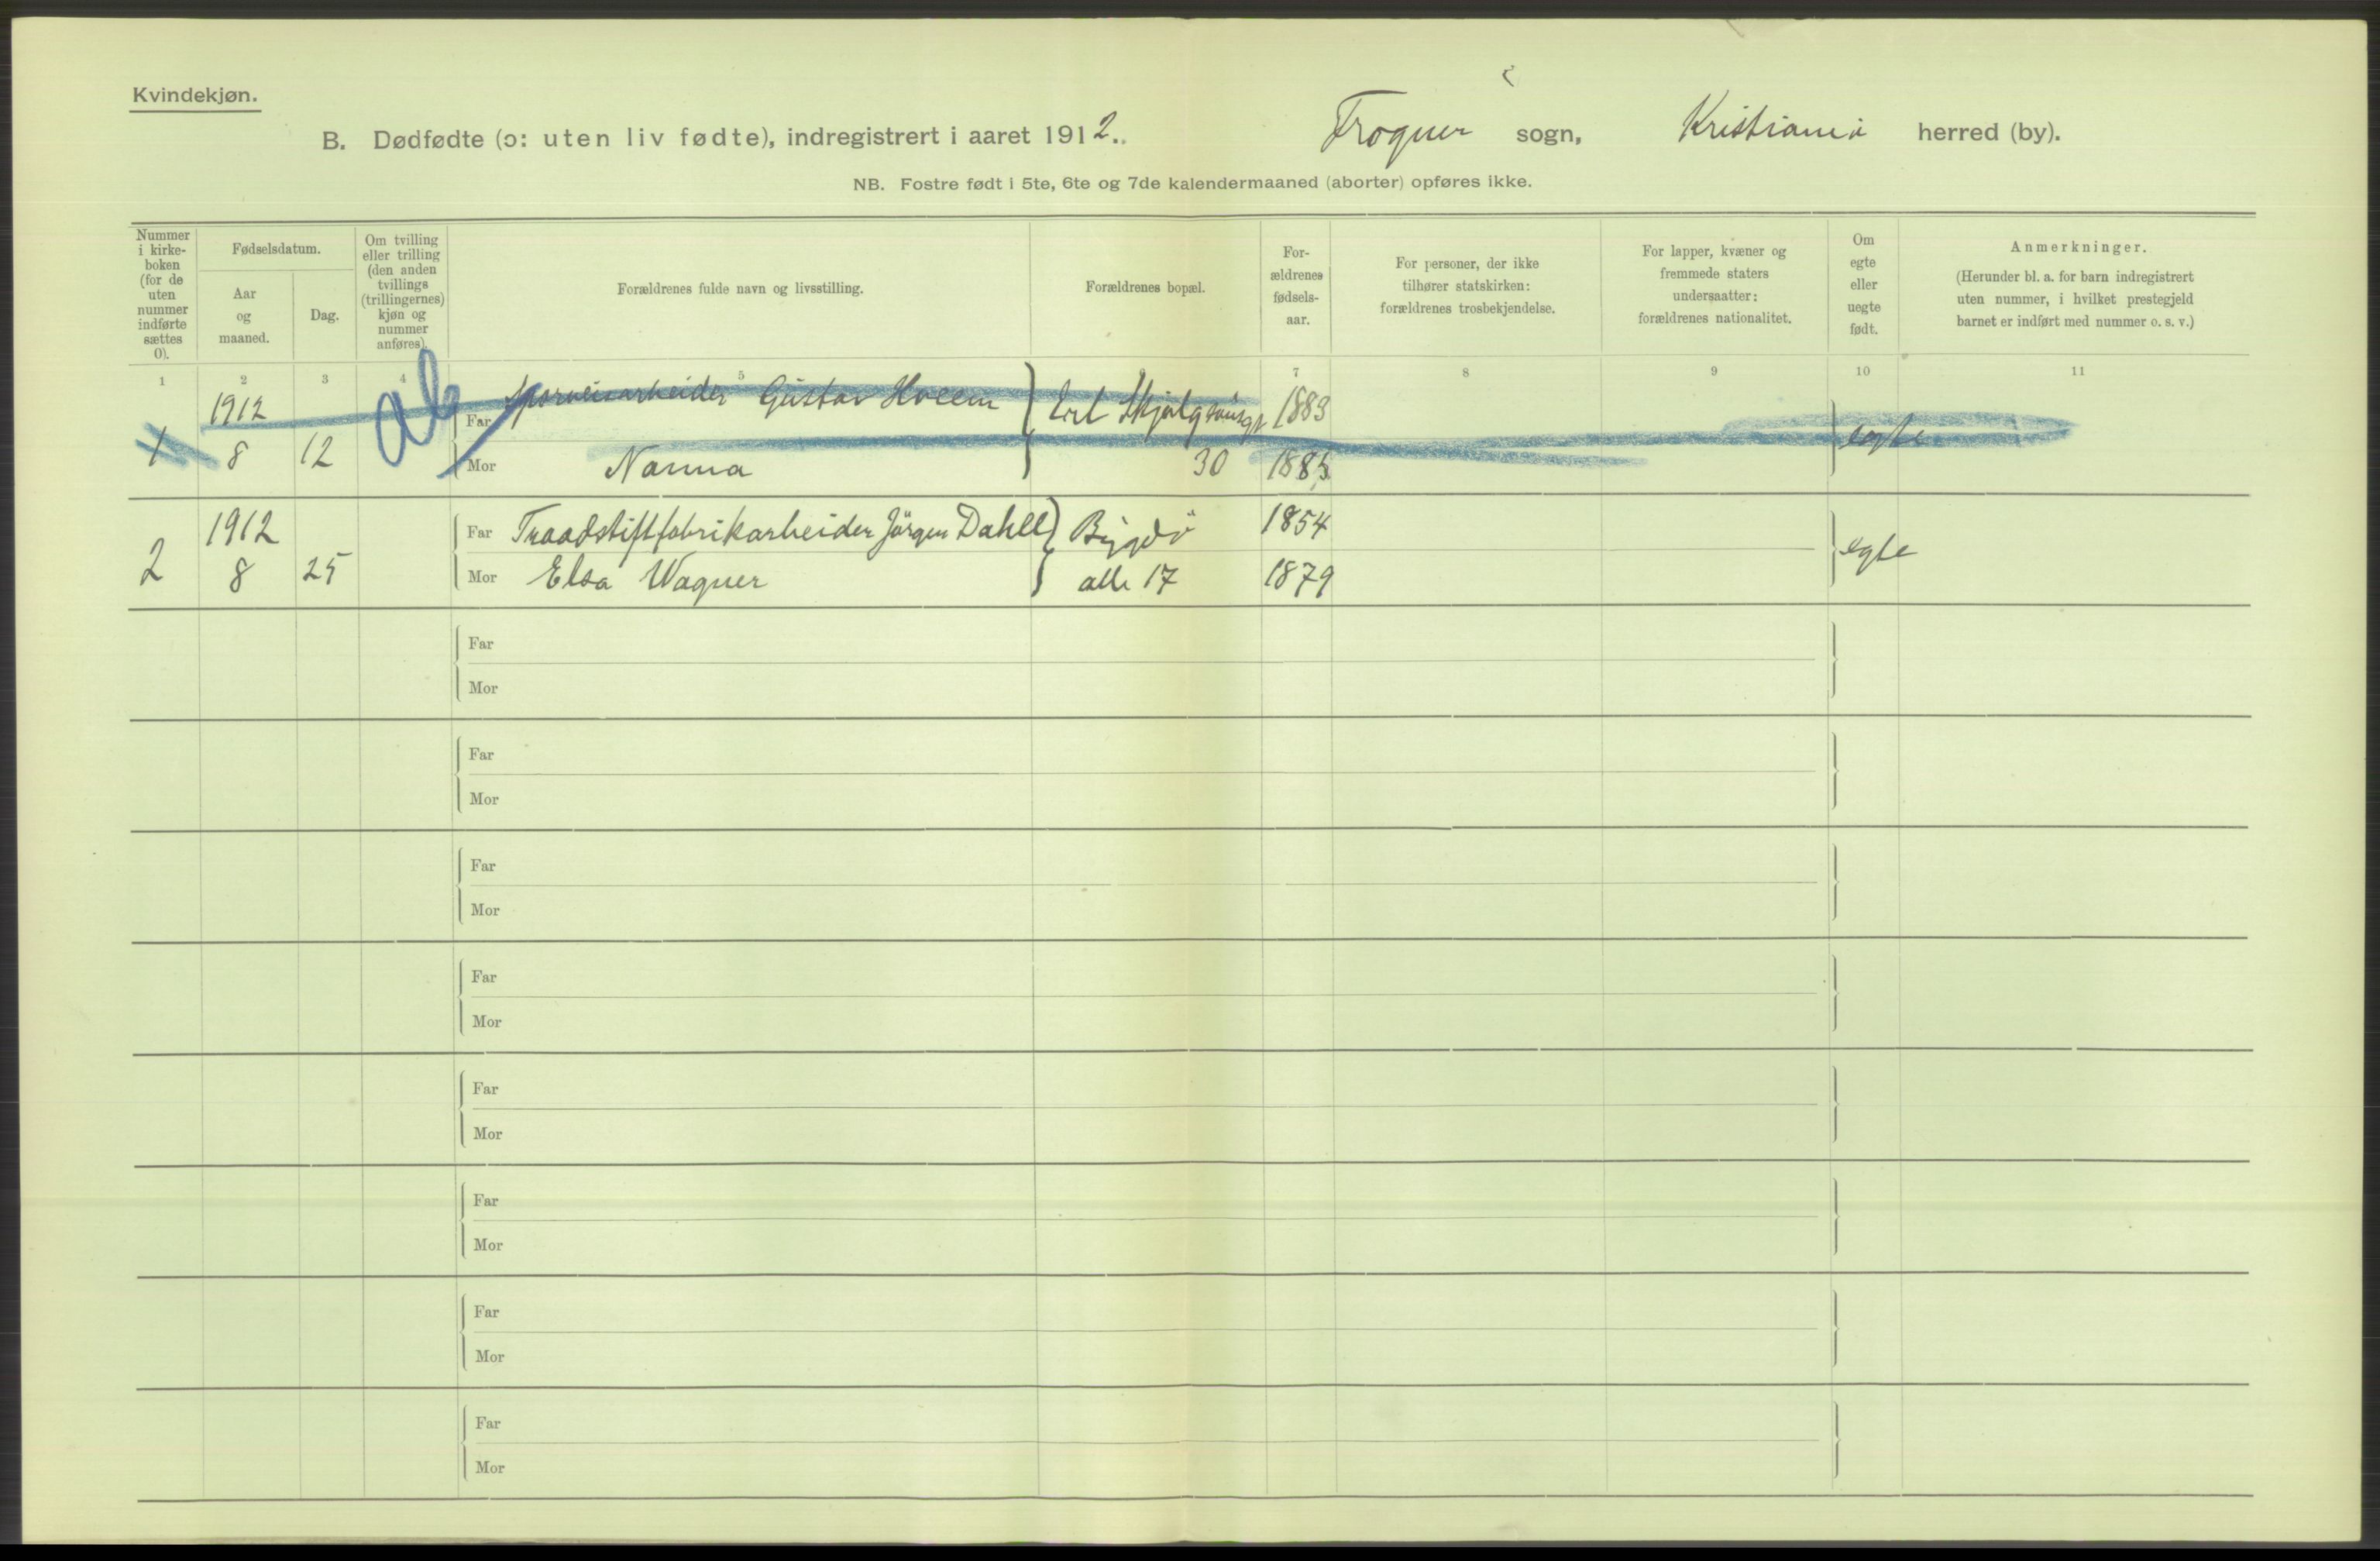 Kvindekjøn.
B. Dødfødte (ɔ: uten liv fødte), indregistrert i aaret 1912. Frogner sogn, Kristiania herred (by).
NB. Fostre født i 5te, 6te og 7de kalendermaaned (aborter) opføres ikke.
Nummer i kirke-boken (for de uten nummer indførte sættes 0).
Fødselsdatum.
Aar og maaned.
Dag.
Om tvilling eller trilling (den anden tvillings (trillingernes) kjøn og nummer anføres).
Forældrenes fulde navn og livsstilling.
Forældrenes bopæl.
For-ældrenes fødsels-aar.
For personer, der ikke tilhører statskirken: forældrenes trosbekjendelse.
For lapper, kvæner og fremmede staters undersaatter: forældrenes nationalitet.
Om egte eller uegte født.
Anmerkninger.
(Herunder bl. a. for barn indregistrert uten nummer, i hvilket prestegjeld barnet er indført med nummer o. s. v.)
1 2 3 4 5 7 8 9 10 11
ab
1912 Far Sporveisarbeider Gustav Hveem Erl. Skjalgssønsgt 1883
1 8 12 Mor Nanna 30 1885 egte
1912 Far Traadstiftfabrikarbeider Jörgen Dahll Bygdö 1854
2 8 25 Mor Elsa Wagner alle 17 1879 egte
Far
Mor
Far
Mor
Far
Mor
Far
Mor
Far
Mor
Far
Mor
Far
Mor
Far
Mor